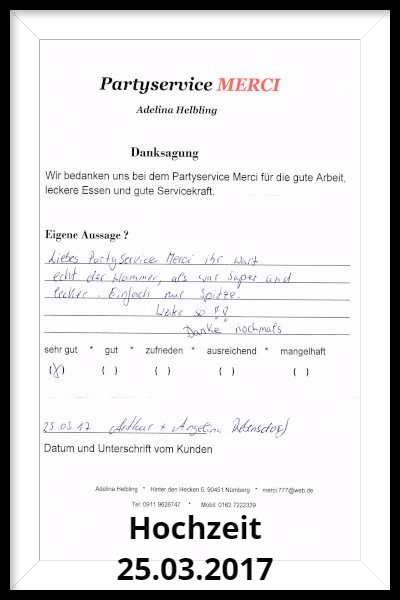 Partyservice MERCI
Adelina Helbling
Danksagung
Wir bedanken uns bei dem Partyservice Merci für die gute Arbeit,
leckere Essen und gute Servicekraft.
Eigene Aussage ?
Liebes PartyService Merci ihr wart
echt der Hammer, alles war super und
lecker. Einfach nur Spitze.
Weiter so !!
Danke nochmals
sehr gut * gut * zufrieden * ausreichend * mangelhaft
(X) ( ) ( ) ( ) ( )
25.03.17 Arthur + Angelina
Datum und Unterschrift vom Kunden
Adelina Helbling * Hinter den Hecken 5, 90451 Nürnberg * merci.777@web.de
Tel: 0911 9626747 * Mobil: 0162 7222339
Hochzeit
25.03.2017